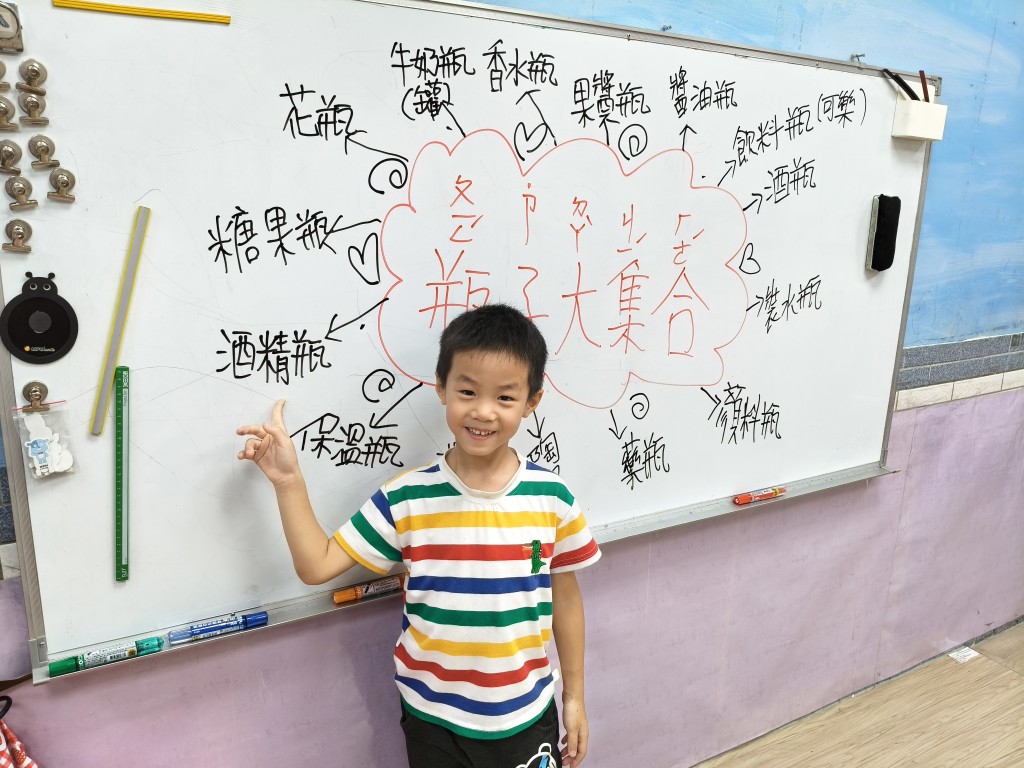 牛奶瓶
(罐)
香水瓶
果醬瓶
醬油瓶
飲料瓶(可樂)
酒瓶
裝水瓶
顏料瓶
藥瓶
保溫瓶
酒精瓶
糖果瓶
花瓶
瓶子大集合